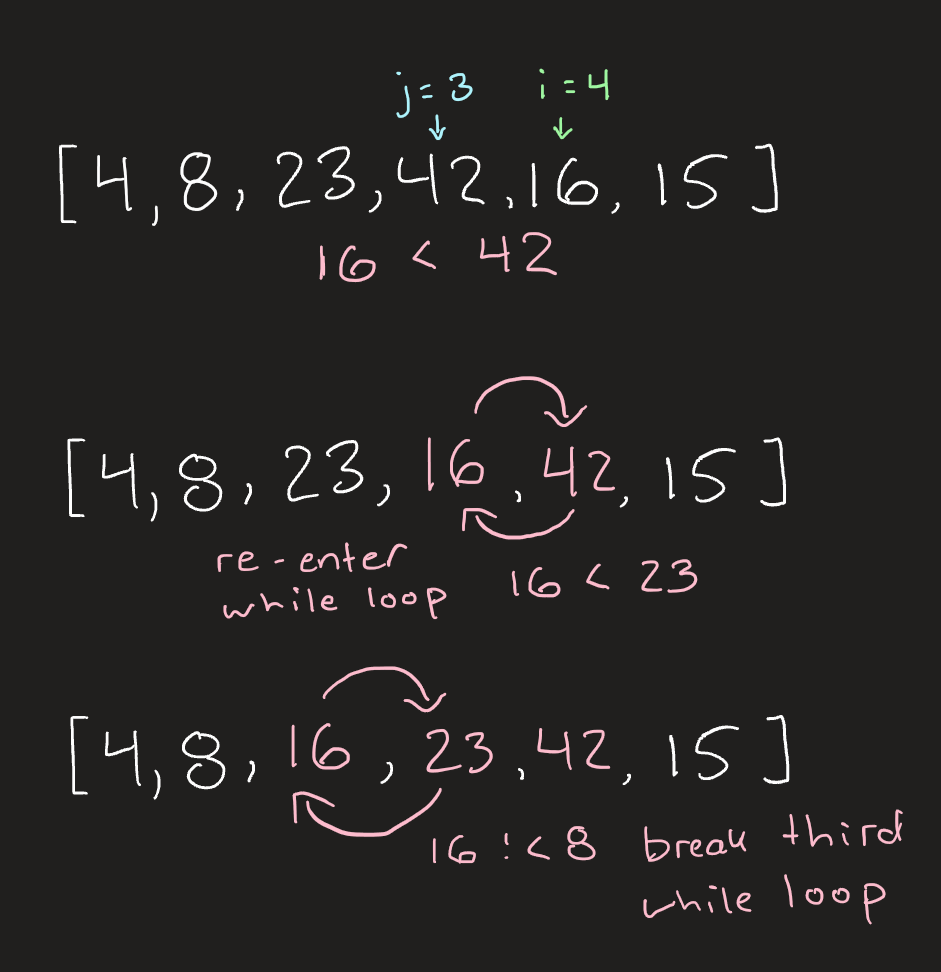 j = 3 i = 4
[4, 8, 23, 42, 16, 15]
16 < 42
[4, 8, 23, 16, 42, 15]
re-enter
while loop 16 < 23
[4, 8, 16, 23, 42, 15]
16 !< 8 break third
while loop